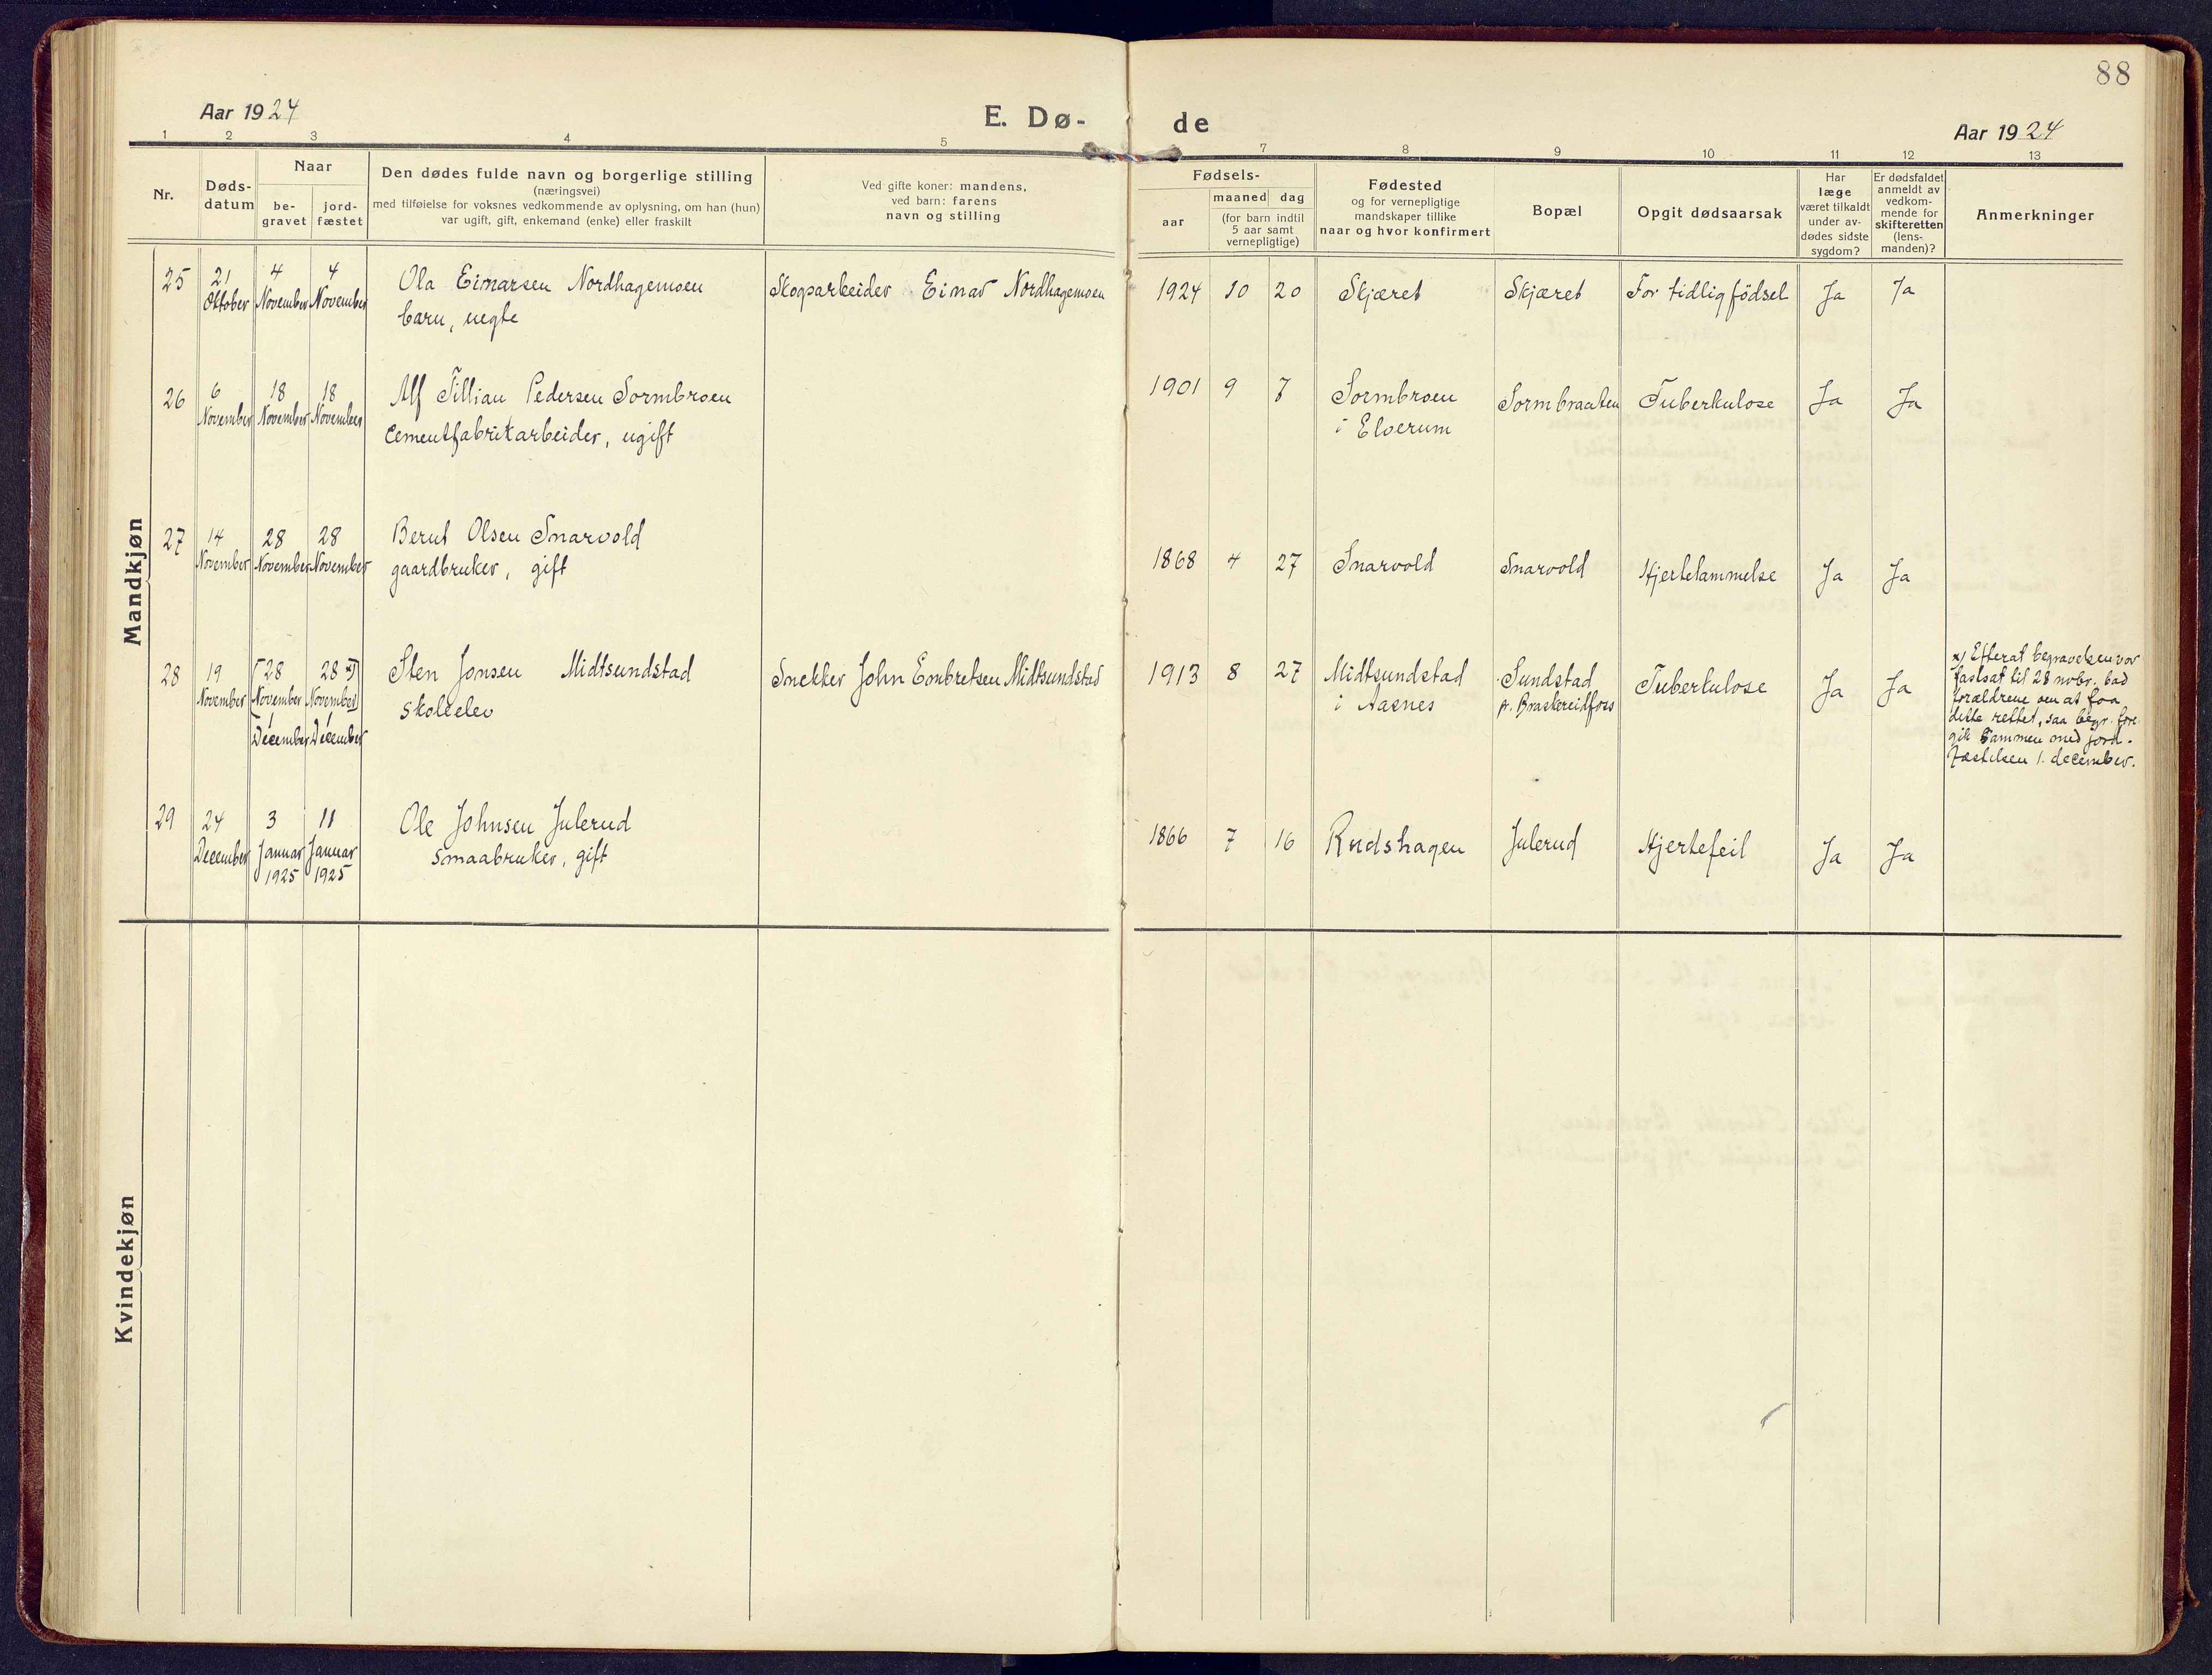 88
Aar 1924
E. Dø-
de
Aar 1924
1 2 3 4 5 7 8 9 10 11 12 13
Nr.
Døds-
datum
Naar
be-
gravet
jord-
fæstet
Den dødes fulde navn og borgerlige stilling
(næringsvei)
med tilføielse for voksnes vedkommende av oplysning, om han (hun)
var ugift, gift, enkemand (enke) eller fraskilt
Ved gifte koner: mandens,
ved barn: farens
navn og stilling
Fødsels-
aar
maaned dag
(for barn indtil
5 aar samt
vernepligtige)
Fødested
og for vernepligtige
mandskaper tillike
naar og hvor konfirmert
Bopæl
Opgit dødsaarsak
Har
læge
været tilkaldt
under av-
dødes sidste
sygdom?
Er dødsfaldet
anmeldt av
vedkom-
mende for
skifteretten
(lens-
manden)?
Anmerkninger
Mandkjøn
25 21 4 4 Ola Einarsen Nordhagemoen Skogsarbeider Einar Nordhagemoen 1924 10 20 Skjæret Skjæret For tidlig fødsel Ja Ja
Oktober November November barn, uegte
26 6 18 18 Alf Tillian Pedersen Sormbroen 1901 9 7 Sormbroen Sormbraaten Tuberkulose Ja Ja
November November November Cementfabrikarbeider, ugift i Elverum
27 14 28 28 Bernt Olsen Snarvold 1868 4 27 Snarvold Snarvold Hjertelammelse Ja Ja
November November November gaardbruker, gift
28 19 [28 28 x)] Sten Jonsen Midtsundstad Snekker John Embretsen Midtsundstad 1913 8 27 Midtsundstad Sundstad Tuberkulose Ja Ja
November November November skoleelev i Aasnes p. Braskereidfoss
1 1
December December
x) Efterat begravelsen var
fastsat til 28 novbr. bad
forældrene om at faa
dette rettet, saa begr. fore-
gik sammen med jord-
fæstelsen 1. december.
29 24 3 11 Ole Johnsen Julerud 1866 7 16 Rudshagen Julerud Hjertefeil Ja Ja
December Januar Januar smaabruker, gift
1925 1925
Kvindekjøn